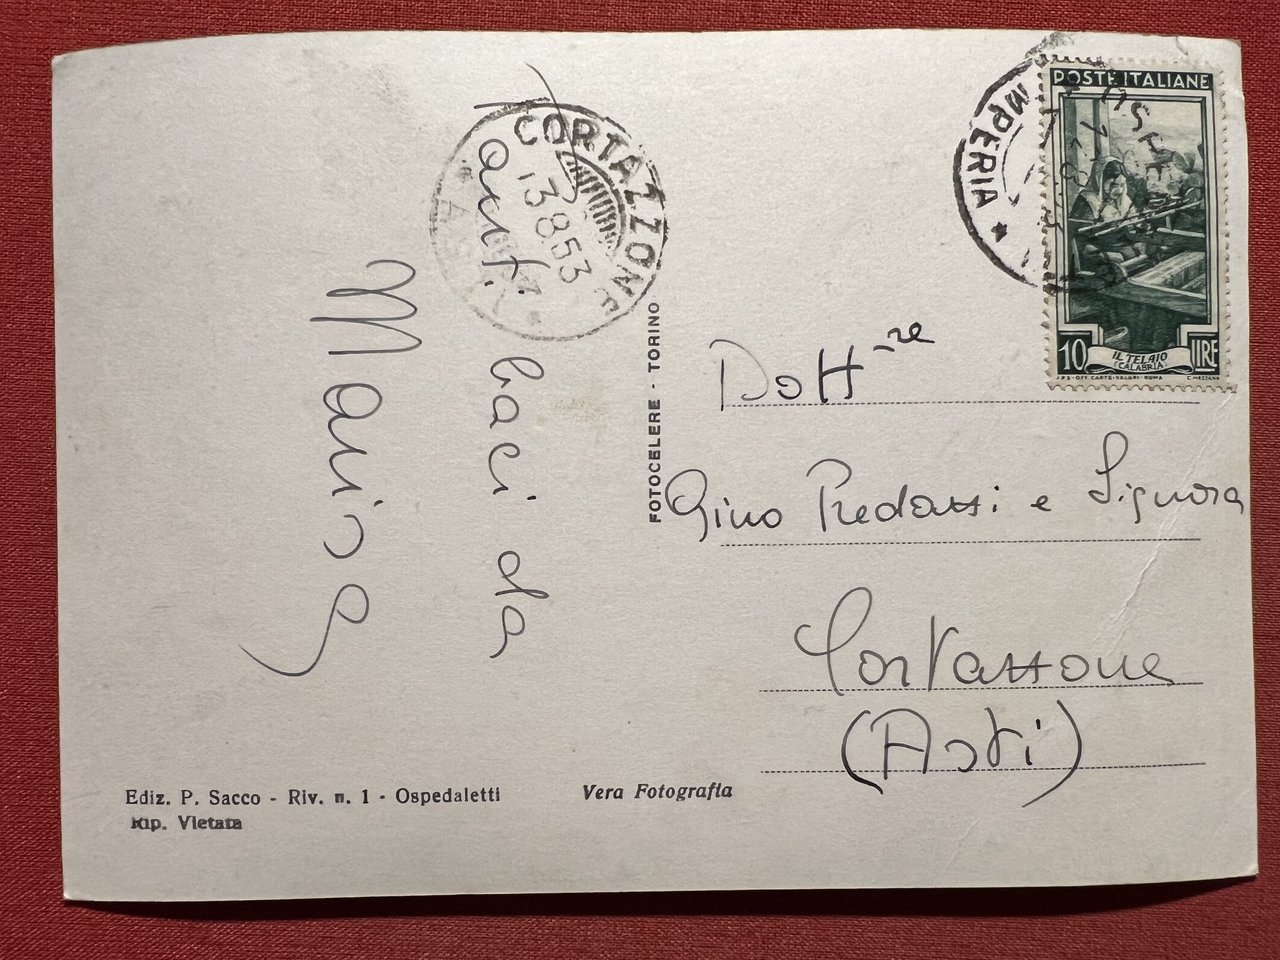 POSTE ITALIANE
10 LIRE
IL TELAIO
(CALABRIA)
IMPERIA *
CORTAZZONE
13 8 53
baci da
Marisa
FOTOCELERE - TORINO
Dott-re
Gino Predassi e Signora
Cortassone
(Asti)
Ediz. P. Sacco - Riv. n. 1 - Ospedaletti
Rip. Vietata
Vera Fotografia